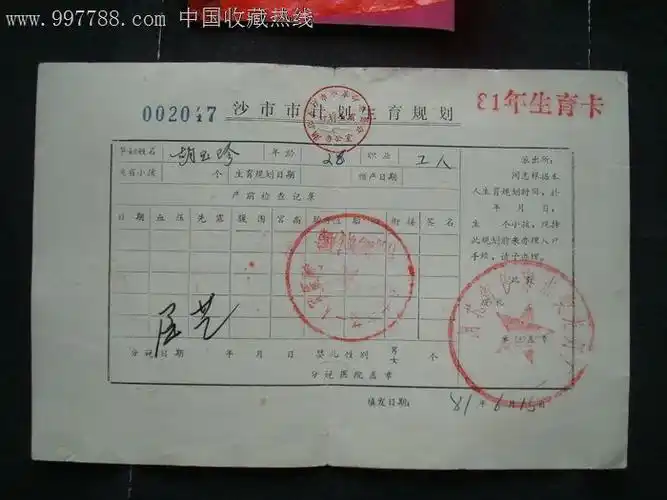 www.997788.com 中国收藏热线
沙市市计划生育规划
81年生育卡
孕妇姓名 胡玉珍 年龄 28 职业 工人
现有小孩 个 生育规划日期 预产日期
产前检查记录
日期 血压 先露 腹围 宫高 衔接 签名
派出所:
同志根据本
人生育规划时间,於
年 月 日,
生 个小孩,现持
此规划前来办理入户
手续,请予办理。
此致
分娩日期 年 月 日 婴儿性别 男 女 个
分娩医院盖章
填发日期: 81年6月15日